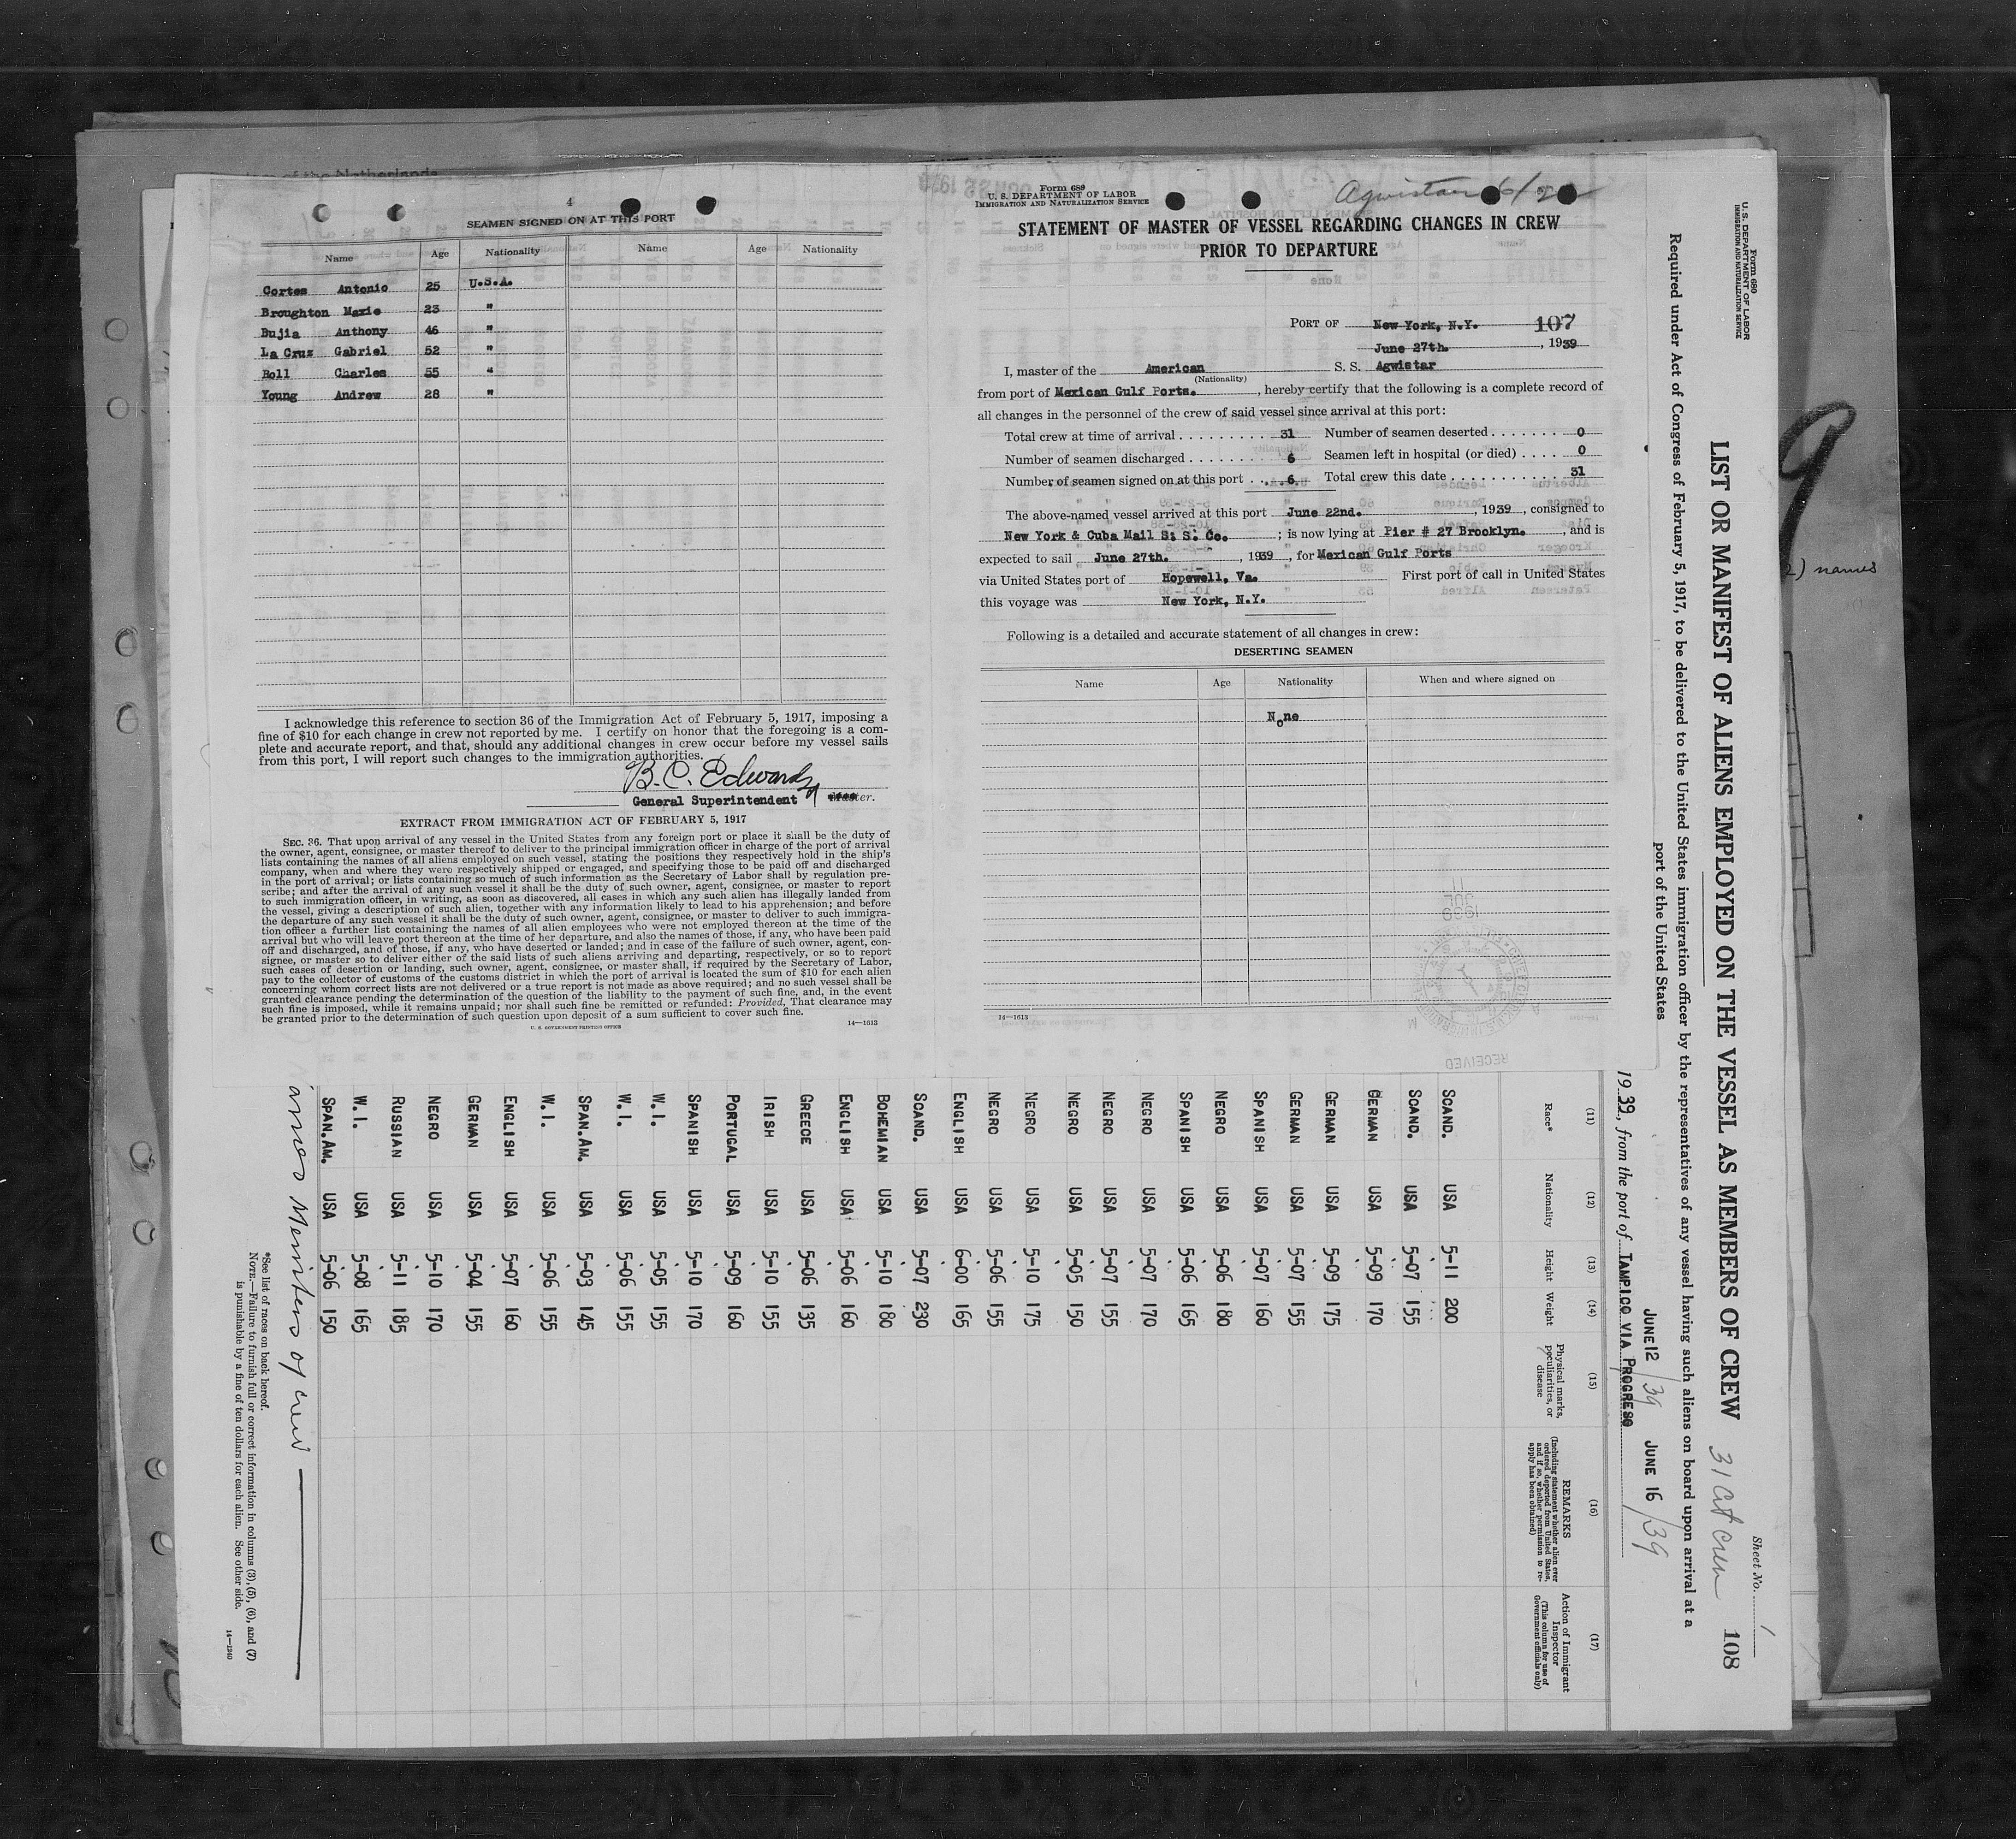 4
SEAMEN SIGNED ON AT THIS PORT
Name Age Nationality Name Age Nationality
Cortes Antonio 25 U.S.A.
Broughton Maxie 23 "
Bujia Anthony 46 "
La Cruz Gabriel 52 "
Roll Charles 55 "
Young Andrew 28 "
I acknowledge this reference to section 36 of the Immigration Act of February 5, 1917, imposing a
fine of $10 for each change in crew not reported by me. I certify on honor that the foregoing is a com-
plete and accurate report, and that, should any additional changes in crew occur before my vessel sails
from this port, I will report such changes to the immigration authorities.
B. C. Edwards
General Superintendent Master.
EXTRACT FROM IMMIGRATION ACT OF FEBRUARY 5, 1917
SEC. 36. That upon arrival of any vessel in the United States from any foreign port or place it shall be the duty of
the owner, agent, consignee, or master thereof to deliver to the principal immigration officer in charge of the port of arrival
lists containing the names of all aliens employed on such vessel, stating the positions they respectively hold in the ship's
company, when and where they were respectively shipped or engaged, and specifying those to be paid off and discharged
in the port of arrival; or lists containing so much of such information as the Secretary of Labor shall by regulation pre-
scribe; and after the arrival of any such vessel it shall be the duty of such owner, agent, consignee, or master to report
to such immigration officer, in writing, as soon as discovered, all cases in which any such alien has illegally landed from
the vessel, giving a description of such alien, together with any information likely to lead to his apprehension; and before
the departure of any such vessel it shall be the duty of such owner, agent, consignee, or master to deliver to such immigra-
tion officer a further list containing the names of all alien employees who were not employed thereon at the time of the
arrival but who will leave port thereon at the time of her departure, and also the names of those, if any, who have been paid
off and discharged, and of those, if any, who have deserted or landed; and in case of the failure of such owner, agent, con-
signee, or master so to deliver either of the said lists of such aliens arriving and departing, respectively, or so to report
such cases of desertion or landing, such owner, agent, consignee, or master shall, if required by the Secretary of Labor,
pay to the collector of customs of the customs district in which the port of arrival is located the sum of $10 for each alien
concerning whom correct lists are not delivered or a true report is not made as above required; and no such vessel shall be
granted clearance pending the determination of the question of the liability to the payment of such fine, and, in the event
such fine is imposed, while it remains unpaid; nor shall such fine be remitted or refunded: Provided, That clearance may
be granted prior to the determination of such question upon deposit of a sum sufficient to cover such fine.
U. S. GOVERNMENT PRINTING OFFICE 14—1613
Form 689
U. S. DEPARTMENT OF LABOR
IMMIGRATION AND NATURALIZATION SERVICE
Agwistar 6/2
STATEMENT OF MASTER OF VESSEL REGARDING CHANGES IN CREW
PRIOR TO DEPARTURE
PORT OF New York, N.Y. 107
June 27th. , 1939
I, master of the American S. S. Agwistar
(Nationality)
from port of Mexican Gulf Ports. , hereby certify that the following is a complete record of
all changes in the personnel of the crew of said vessel since arrival at this port:
Total crew at time of arrival 31 Number of seamen deserted 0
Number of seamen discharged 6 Seamen left in hospital (or died) 0
Number of seamen signed on at this port 6 Total crew this date 31
The above-named vessel arrived at this port June 22nd. , 1939 , consigned to
New York & Cuba Mail S. S. Co. ; is now lying at Pier # 27 Brooklyn. , and is
expected to sail June 27th. , 1939 , for Mexican Gulf Ports
via United States port of Hopewell, Va. First port of call in United States
this voyage was New York, N.Y.
Following is a detailed and accurate statement of all changes in crew:
DESERTING SEAMEN
Name Age Nationality When and where signed on
None
14—1613
RECEIVED
Form 680
U. S. DEPARTMENT OF LABOR
IMMIGRATION AND NATURALIZATION SERVICE
Sheet No. 1
LIST OR MANIFEST OF ALIENS EMPLOYED ON THE VESSEL AS MEMBERS OF CREW 31 at crew 108
Required under Act of Congress of February 5, 1917, to be delivered to the United States immigration officer by the representatives of any vessel having such aliens on board upon arrival at a
port of the United States
JUNE 12/39 JUNE 16/39
1939, from the port of TAMPICO VIA PROGRESO
(11) (12) (13) (14) (15) (16) (17)
Race* Nationality Height Weight Physical marks, peculiarities, or disease REMARKS (Including statement whether alien ever ordered deported from United States, and if so, whether permission to re-apply has been obtained) Action of Immigrant Inspector (This column for use of Government officials only)
SCAND. USA 5-11 200
SCAND. USA 5-07 155
GERMAN USA 5-09 170
GERMAN USA 5-09 175
GERMAN USA 5-07 155
SPANISH USA 5-07 160
NEGRO USA 5-06 180
SPANISH USA 5-06 165
NEGRO USA 5-07 170
NEGRO USA 5-07 155
NEGRO USA 5-05 150
NEGRO USA 5-10 175
NEGRO USA 5-06 155
ENGLISH USA 6-00 165
SCAND. USA 5-07 230
BOHEMIAN USA 5-10 180
ENGLISH USA 5-06 160
GREECE USA 5-06 135
IRISH USA 5-10 155
PORTUGAL USA 5-09 160
SPANISH USA 5-10 170
W.I. USA 5-05 155
W.I. USA 5-06 155
SPAN.AM. USA 5-03 145
W.I. USA 5-06 155
ENGLISH USA 5-07 160
GERMAN USA 5-04 155
NEGRO USA 5-10 170
RUSSIAN USA 5-11 185
W.I. USA 5-08 165
SPAN.AM. USA 5-06 150
Members of crew
*See list of races on back hereof.
NOTE.—Failure to furnish full or correct information in columns (3), (5), (6), and (7)
is punishable by a fine of ten dollars for each alien. See other side.
14—1240
9
2) names
of the Netherlands